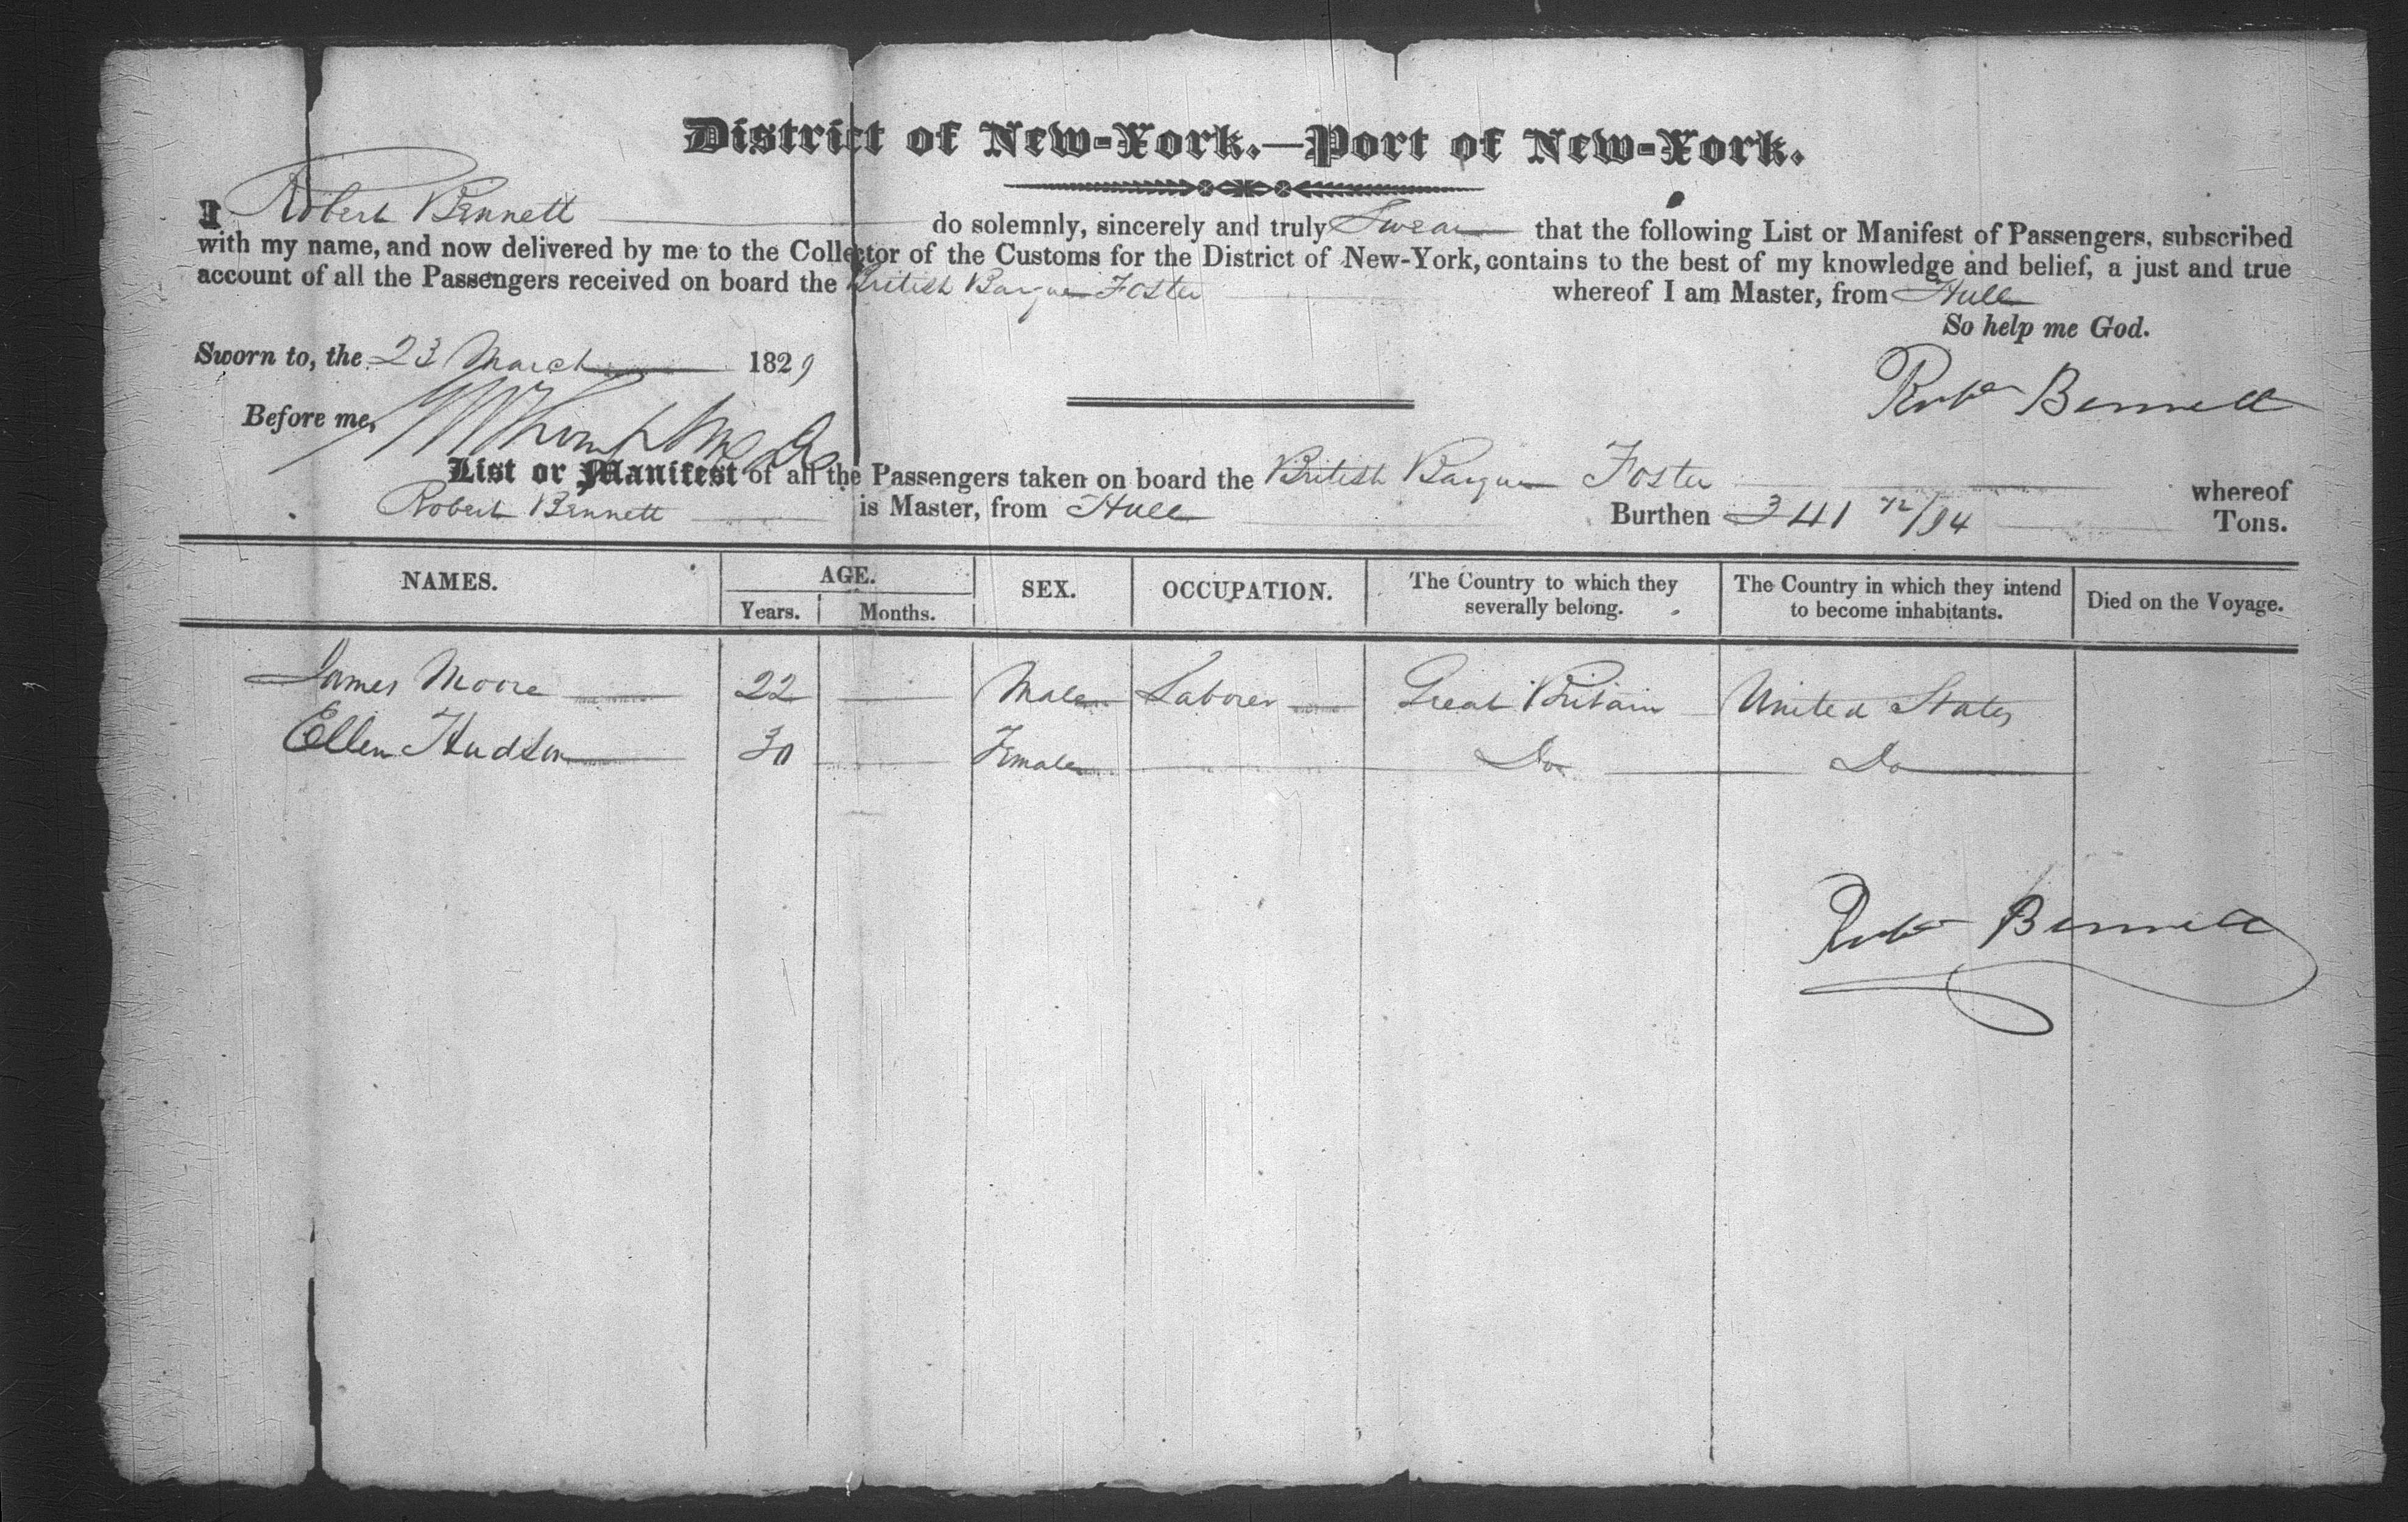 District of New-York.—Port of New-York.
I Robert Bennett do solemnly, sincerely and truly Swear that the following List or Manifest of Passengers, subscribed
with my name, and now delivered by me to the Collector of the Customs for the District of New-York, contains to the best of my knowledge and belief, a just and true
account of all the Passengers received on board the British Barque Foster whereof I am Master, from Hull
So help me God.
Sworn to, the 23 March 1829
Robt Bennett
Before me,
List or Manifest of all the Passengers taken on board the British Barque Foster whereof
Robert Bennett is Master, from Hull Burthen 341 72/94 Tons.
NAMES. AGE. SEX. OCCUPATION. The Country to which they severally belong. The Country in which they intend to become inhabitants. Died on the Voyage.
Years. Months.
James Moore 22 Male Laborer Great Britain United States
Ellen Hudson 30 Female Do Do
Robt Bennett